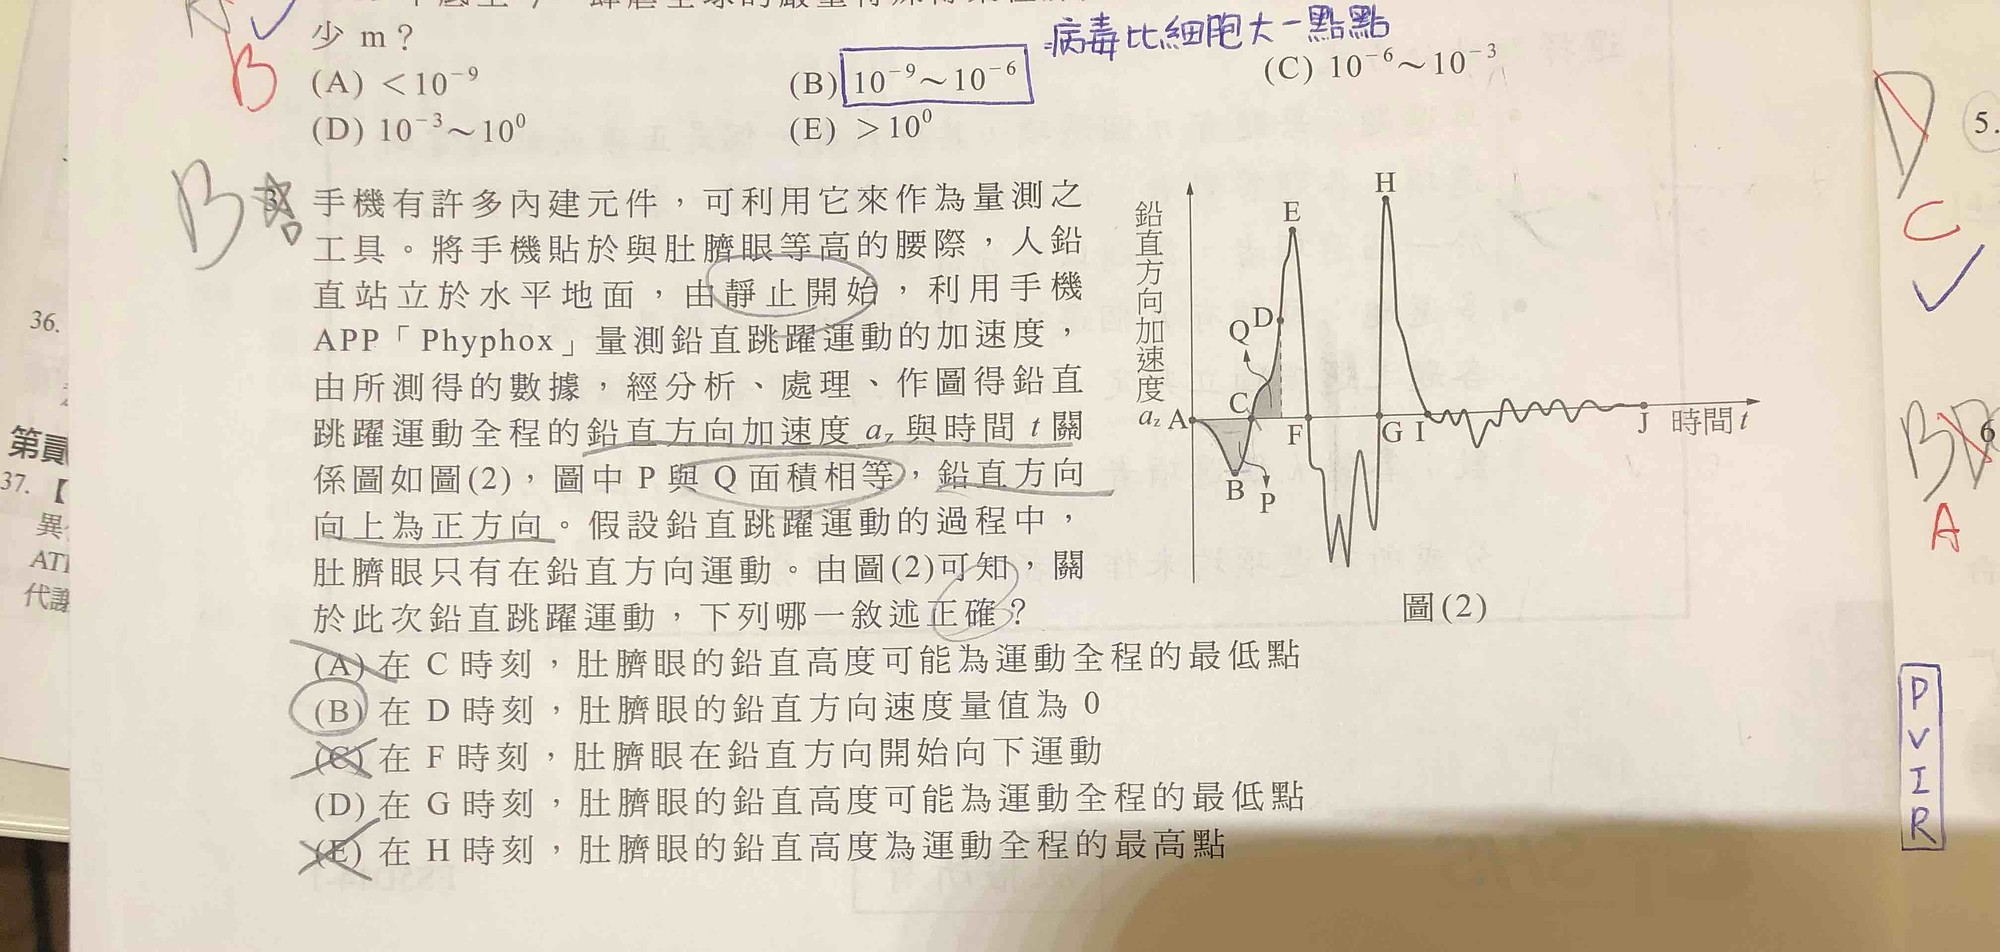 少 m？
病毒比細胞大一點點
(A) ＜10⁻⁹
(B) 10⁻⁹～10⁻⁶
(C) 10⁻⁶～10⁻³
(D) 10⁻³～10⁰
(E) ＞10⁰
B
B
手機有許多內建元件，可利用它來作為量測之
工具。將手機貼於與肚臍眼等高的腰際，人鉛
直站立於水平地面，由靜止開始，利用手機
APP「Phyphox」量測鉛直跳躍運動的加速度，
由所測得的數據，經分析、處理、作圖得鉛直
跳躍運動全程的鉛直方向加速度 a_z 與時間 t 關
係圖如圖(2)，圖中 P 與 Q 面積相等，鉛直方向
向上為正方向。假設鉛直跳躍運動的過程中，
肚臍眼只有在鉛直方向運動。由圖(2)可知，關
於此次鉛直跳躍運動，下列哪一敘述正確？
(A) 在 C 時刻，肚臍眼的鉛直高度可能為運動全程的最低點
(B) 在 D 時刻，肚臍眼的鉛直方向速度量值為 0
(C) 在 F 時刻，肚臍眼在鉛直方向開始向下運動
(D) 在 G 時刻，肚臍眼的鉛直高度可能為運動全程的最低點
(E) 在 H 時刻，肚臍眼的鉛直高度為運動全程的最高點
鉛直方向加速度
a_z
A
B
C
D
E
F
G
H
I
J
P
Q
時間 t
圖(2)
36.
第貳
37.【
異
AT
代謝
D
5.
C
B
6
A
P
V
I
R